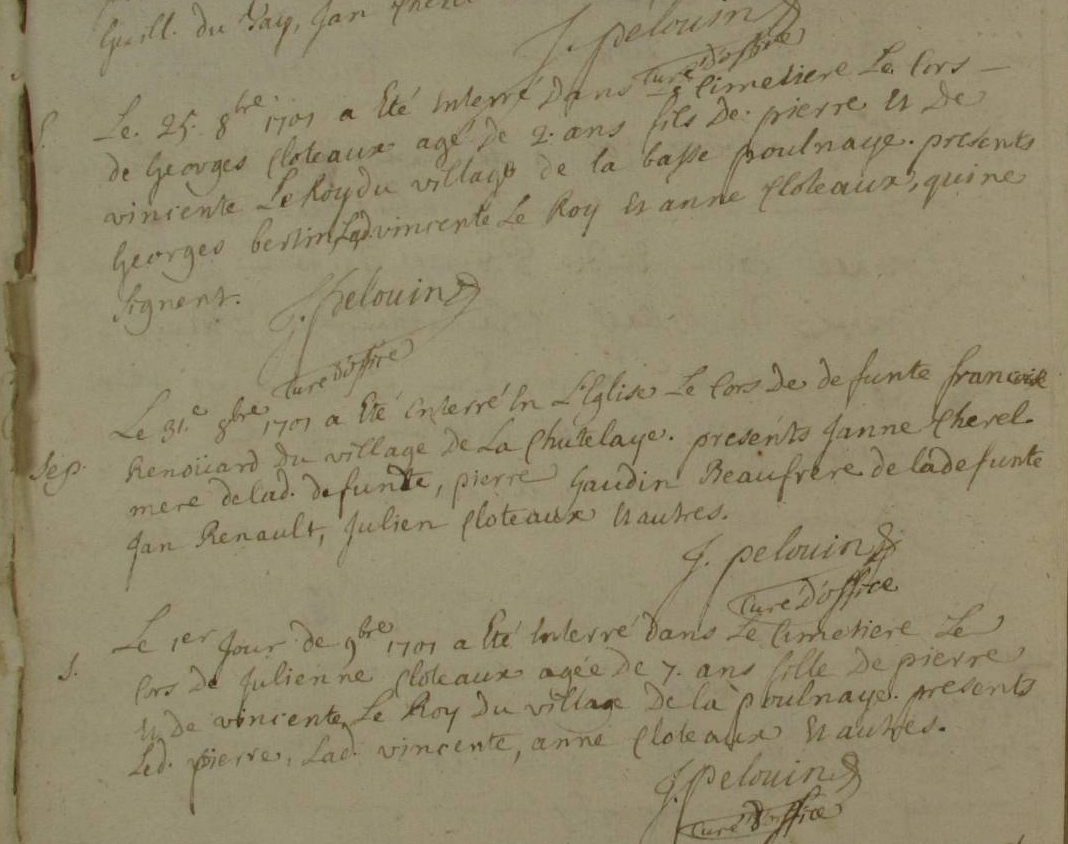 Guill. du Fay, Jan Cherel
J. Pelouin
Curé d'office
S. Le. 25. 8bre 1701 a Eté Interré Dans Le Cimetiere Le Cors
de Georges Cloteaux agé de 2. ans fils De. pierre Et De
vincente Le Roy du village de la basse poulnaye. presents
Georges bertin, Lad. vincente Le Roy Et anne Cloteaux, qui ne
signent.
J. Pelouin
Curé d'office
Le 31.e 8bre 1701 a Eté Interré En L'Eglise Le Cors de defunte francoise
Sep. Renoüard du village de La Chutelaye. presents Janne Cherel
mere de lad. defunte, pierre Gaudin Beaufrere de ladefunte
Jan Renault, Julien Cloteaux Et autres.
J. pelouin
Curé d'office
Le 1er Jour de 9bre 1701 a Eté Interré dans Le Cimetiere Le
S. Cors de Julienne Cloteaux agée de 7. ans fille de pierre
Et de vincente Le Roy du village de la poulnaye. presents
Led. pierre, Lad. vincente, anne Cloteaux Et autres.
J. Pelouin
Curé d'office